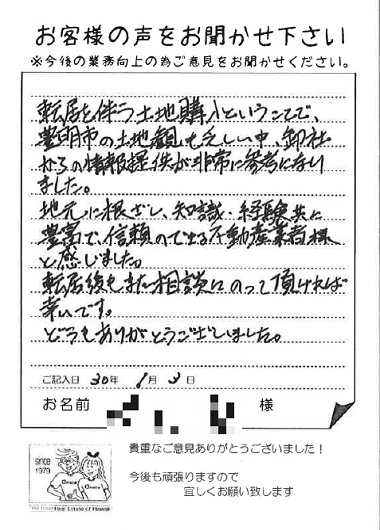 お客様の声をお聞かせ下さい
※今後の業務向上の為ご意見をお聞かせください。
転居を伴う土地購入ということで、
豊明市の土地観も乏しい中、御社
からの情報提供が非常に参考になり
ました。
地元に根ざし、知識・経験共に
豊富で、信頼のできる不動産業者様
と感じました。
転居後もまた相談にのって頂ければ
幸いです。
どうもありがとうございました。
ご記入日 30年 1月 3日
お名前 様
貴重なご意見ありがとうございました！
今後も頑張りますので
宜しくお願い致します
since
1979
Real Estate of Flower